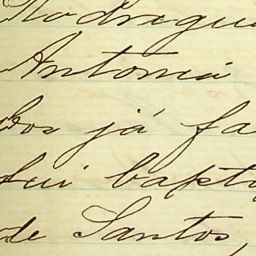 Rodrigu
Antonia
bos já fa
fui bapti
de Santos,